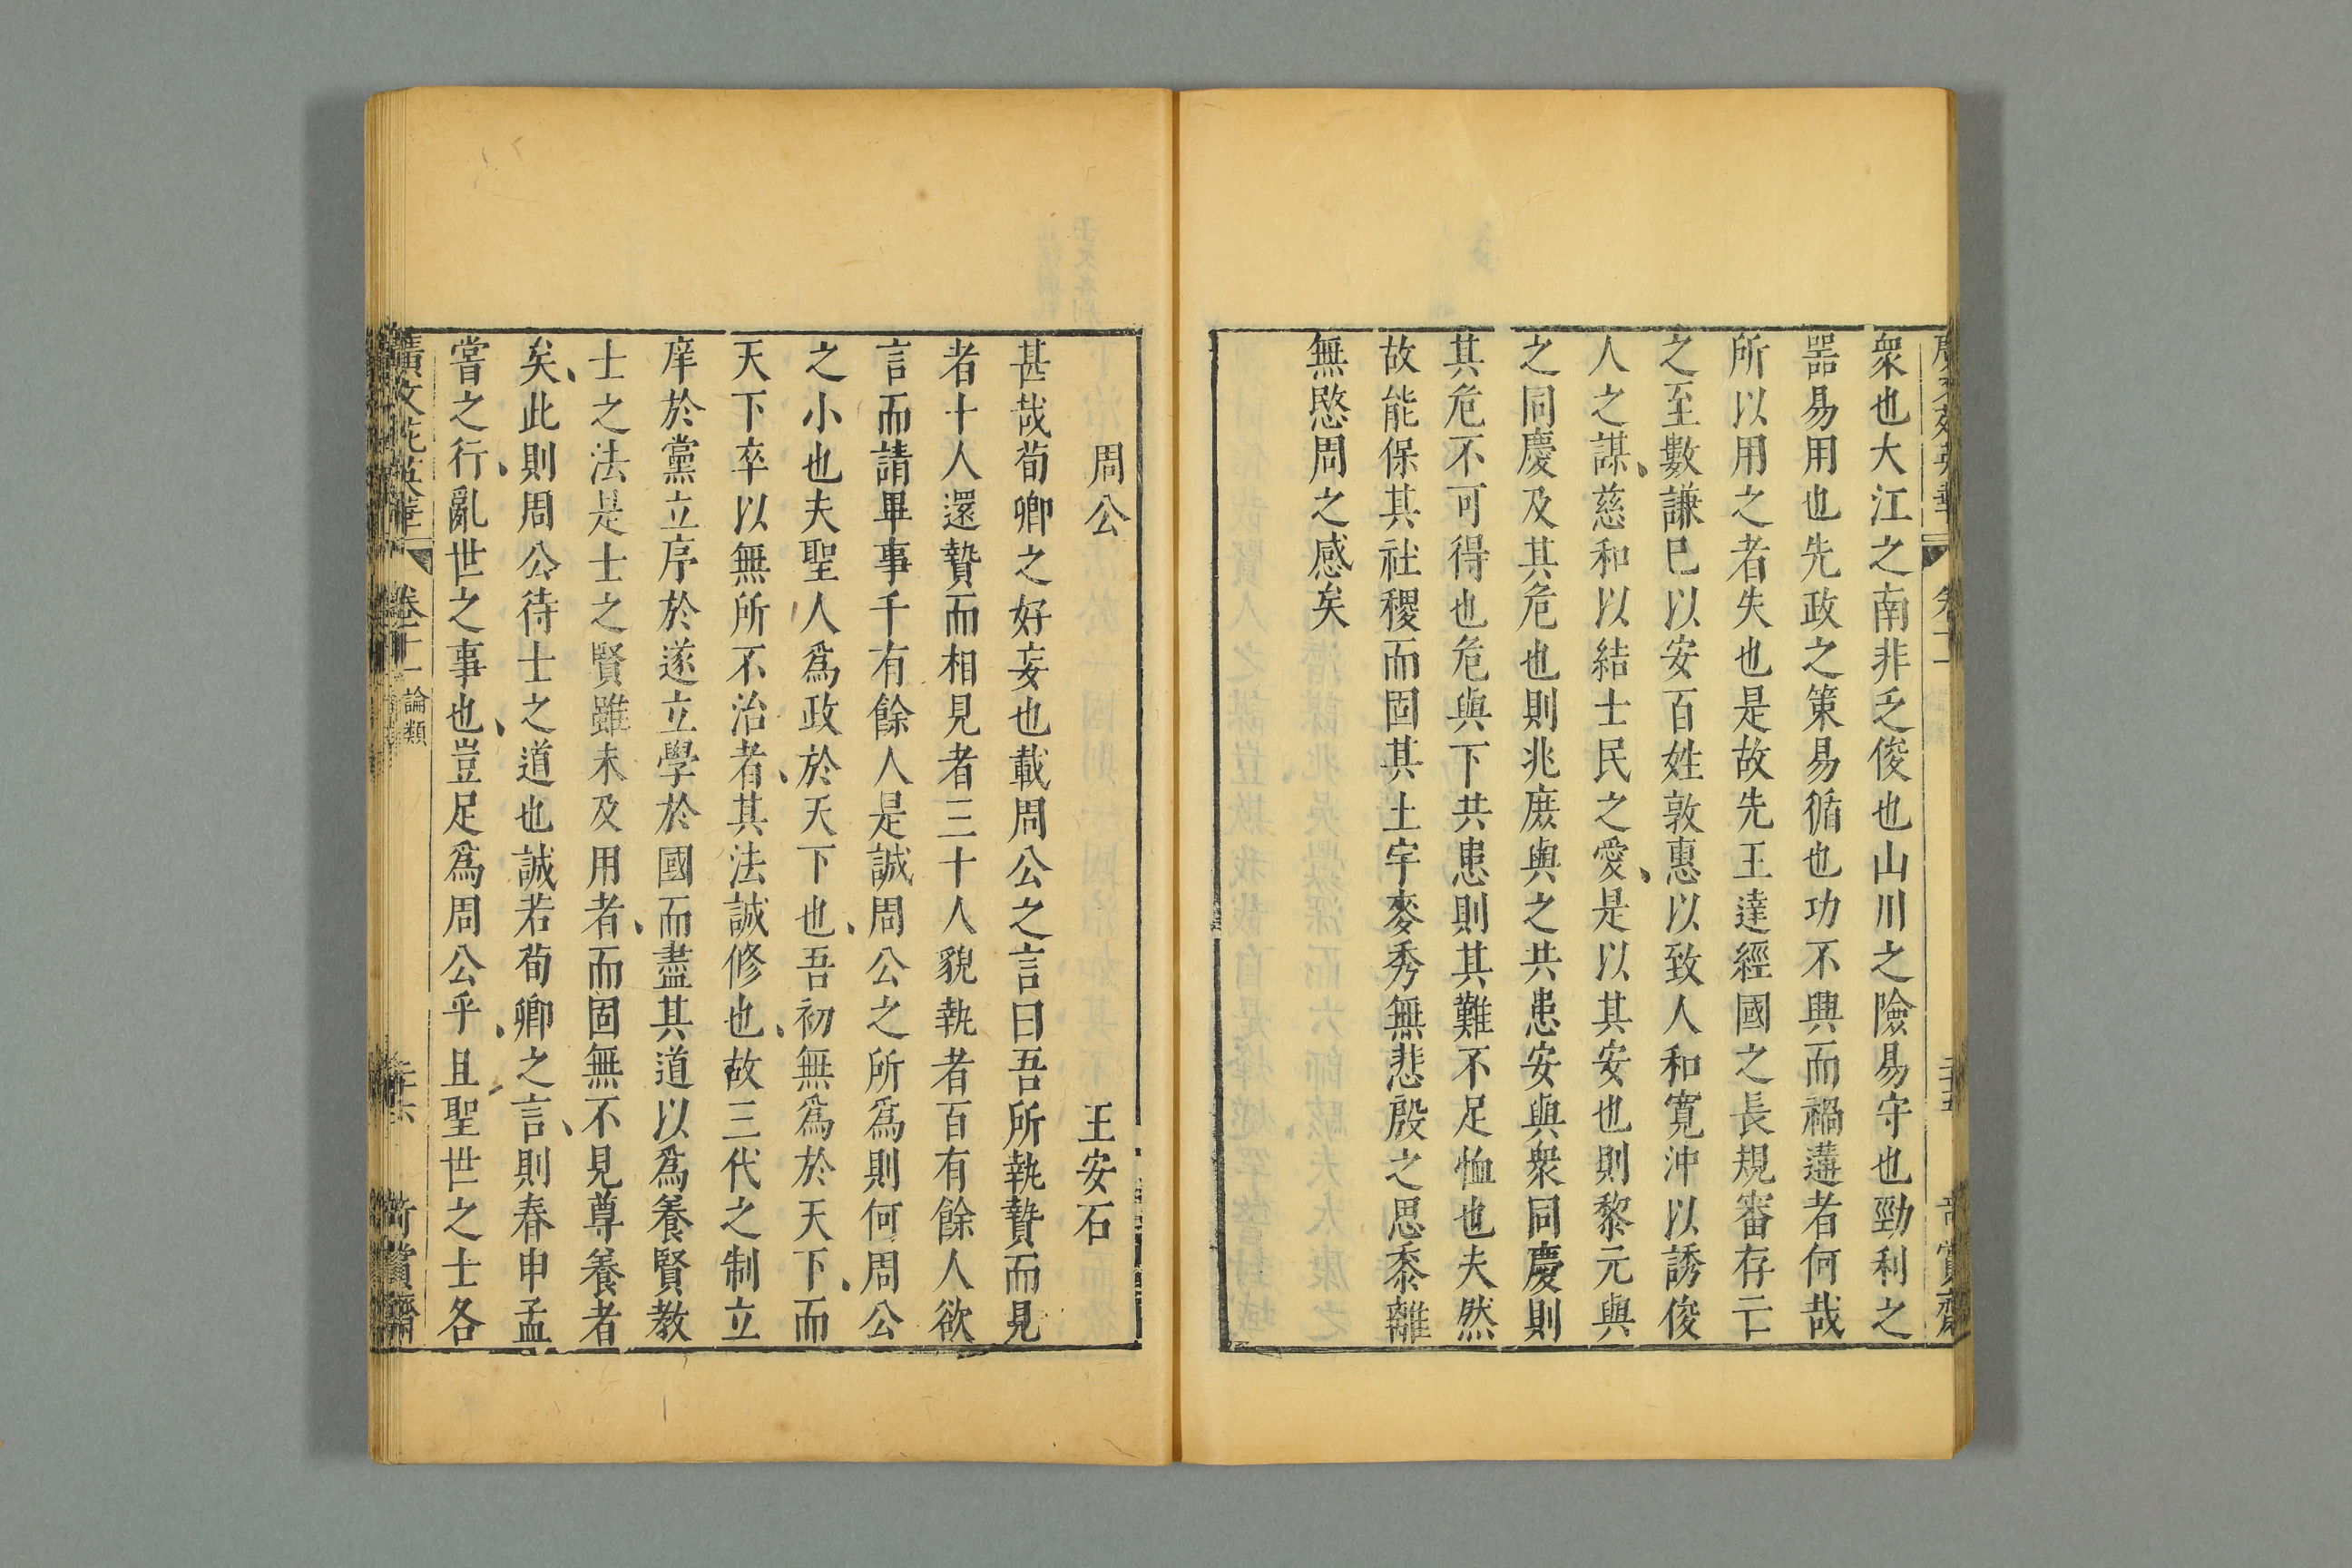 衆也大江之南非乏俊也山川之險易守也勁利之
噐易用也先政之策易循也功不興而禍遘者何哉
所以用之者失也是故先王達經國之長規審存亡
之至數謙巳以安百姓敦惠以致人和寬沖以誘俊
人之謀慈和以結士民之愛是以其安也則黎元與
之同慶及其危也則兆庶與之共患安與衆同慶則
其危不可得也危與下共患則其難不足恤也夫然
故能保其社稷而固其土宇麥秀無悲殷之思黍離
無愍周之感矣
周公 王安石
甚哉荀卿之好妄也載周公之言曰吾所執贄而見
者十人還贄而相見者三十人貌執者百有餘人欲
言而請畢事千有餘人是誠周公之所爲則何周公
之小也夫聖人爲政於天下也吾初無爲於天下而
天下卒以無所不治者其法誠修也故三代之制立
庠於黨立序於遂立學於國而盡其道以爲養賢教
士之法是士之賢雖未及用者而固無不見尊養者
矣此則周公待士之道也誠若荀卿之言則春申孟
嘗之行亂世之事也豈足爲周公乎且聖世之士各
廣文苑英華 卷十一 論類 二十六 尚賞齋